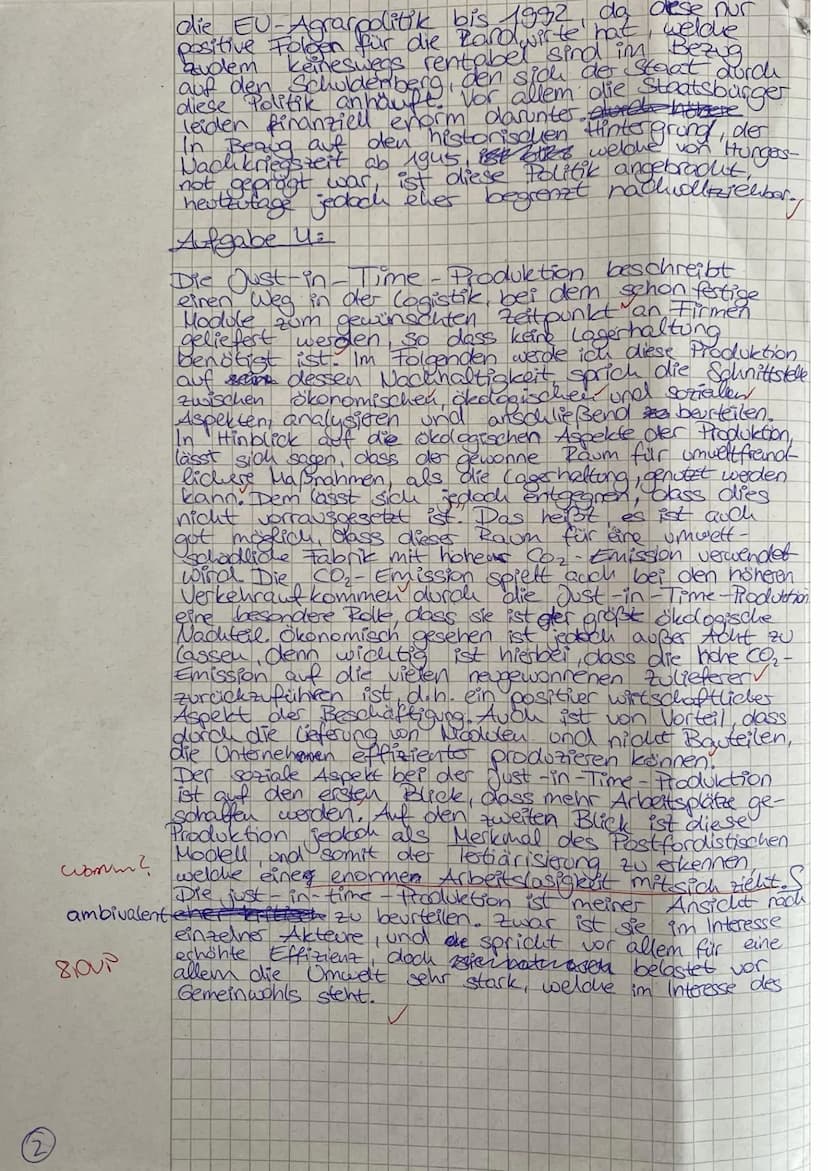 die EU-Agrarpolitik bis 1992, da diese nur
positive Folgen für die Landwirte hat, welche
zudem keineswegs rentabel sind im Bezug
auf den Schuldenberg, den sich der Staat durch
diese Politik anhäuft. Vor allem die Staatsbürger
leiden finanziell enorm darunter. durch höhere
In Bezug auf den historischen Hintergrund, der
Nachkriegszeit ab 1945, welche von Hungers-
not geprägt war, ist diese Politik angebracht,
heutzutage jedoch eher begrenzt nachvollziehbar.
Aufgabe 4:
Die Just-in-Time-Produktion beschreibt
einen Weg in der Logistik, bei dem schon fertige
Module zum gewünschten Zeitpunkt an Firmen
geliefert werden, so dass keine Lagerhaltung
benötigt ist. Im Folgenden werde ich diese Produktion
auf dessen Nachhaltigkeit, sprich die Schnittstelle
zwischen ökonomischen, ökologischen und sozialen
Aspekten, analysieren und anschließend beurteilen.
In Hinblick auf die ökologischen Aspekte der Produktion,
lässt sich sagen, dass der gewonne Raum für umweltfreund-
lichere Maßnahmen, als die Lagerhaltung, genutzt werden
kann. Dem lässt sich jedoch entgegnen, dass dies
nicht vorrausgesetzt ist. Das heißt es ist auch
gut möglich, dass dieser Raum für eine umwelt-
schädliche Fabrik mit hoher CO2-Emission verwendet
wird. Die CO2-Emission spielt auch bei den höheren
Verkehraufkommen durch die Just-in-Time-Produktion
eine besondere Rolle, dass sie ist der größt ökologische
Nachteil. Ökonomisch gesehen ist jedoch außer Acht zu
lassen, denn wichtig ist hierbei, dass die hohe CO2-
Emission auf die vielen neugewonnenen Zulieferer
zurückzuführen ist, d.h. ein positiver wirtschaftlicher
Aspekt der Beschäftigung. Auch ist von Vorteil, dass
durch die Lieferung von Modulen und nicht Bauteilen,
die Unternehmen effizienter produzieren können.
Der soziale Aspekt bei der Just-in-Time-Produktion
ist auf den ersten Blick, dass mehr Arbeitsplätze ge-
schaffen werden. Auf den zweiten Blick ist diese
Produktion jedoch als Merkmal des Postfordistischen
Modell und somit der Tertiärisierung zu erkennen,
warum? welche eine enormen Arbeitslosigkeit mitsich zieht. S
Die just-in-time-Produktion ist meiner Ansicht nach
ambivalent eher kritisch zu beurteilen. Zwar ist sie im Interesse
einzelner Akteure, und spricht vor allem für eine
8,0VP erhöhte Effizienz, doch belastet vor
allem die Umwelt sehr stark, welche im Interesse des
Gemeinwohls steht.
2